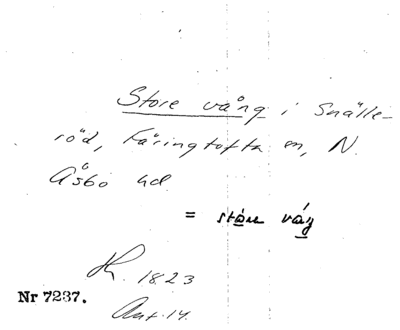 Store vång i Snälle-
röd, Färingtofta sn, N.
Åsbo hd.
= ståre våŋ
1823
Nr 7237.
Ant. 14.